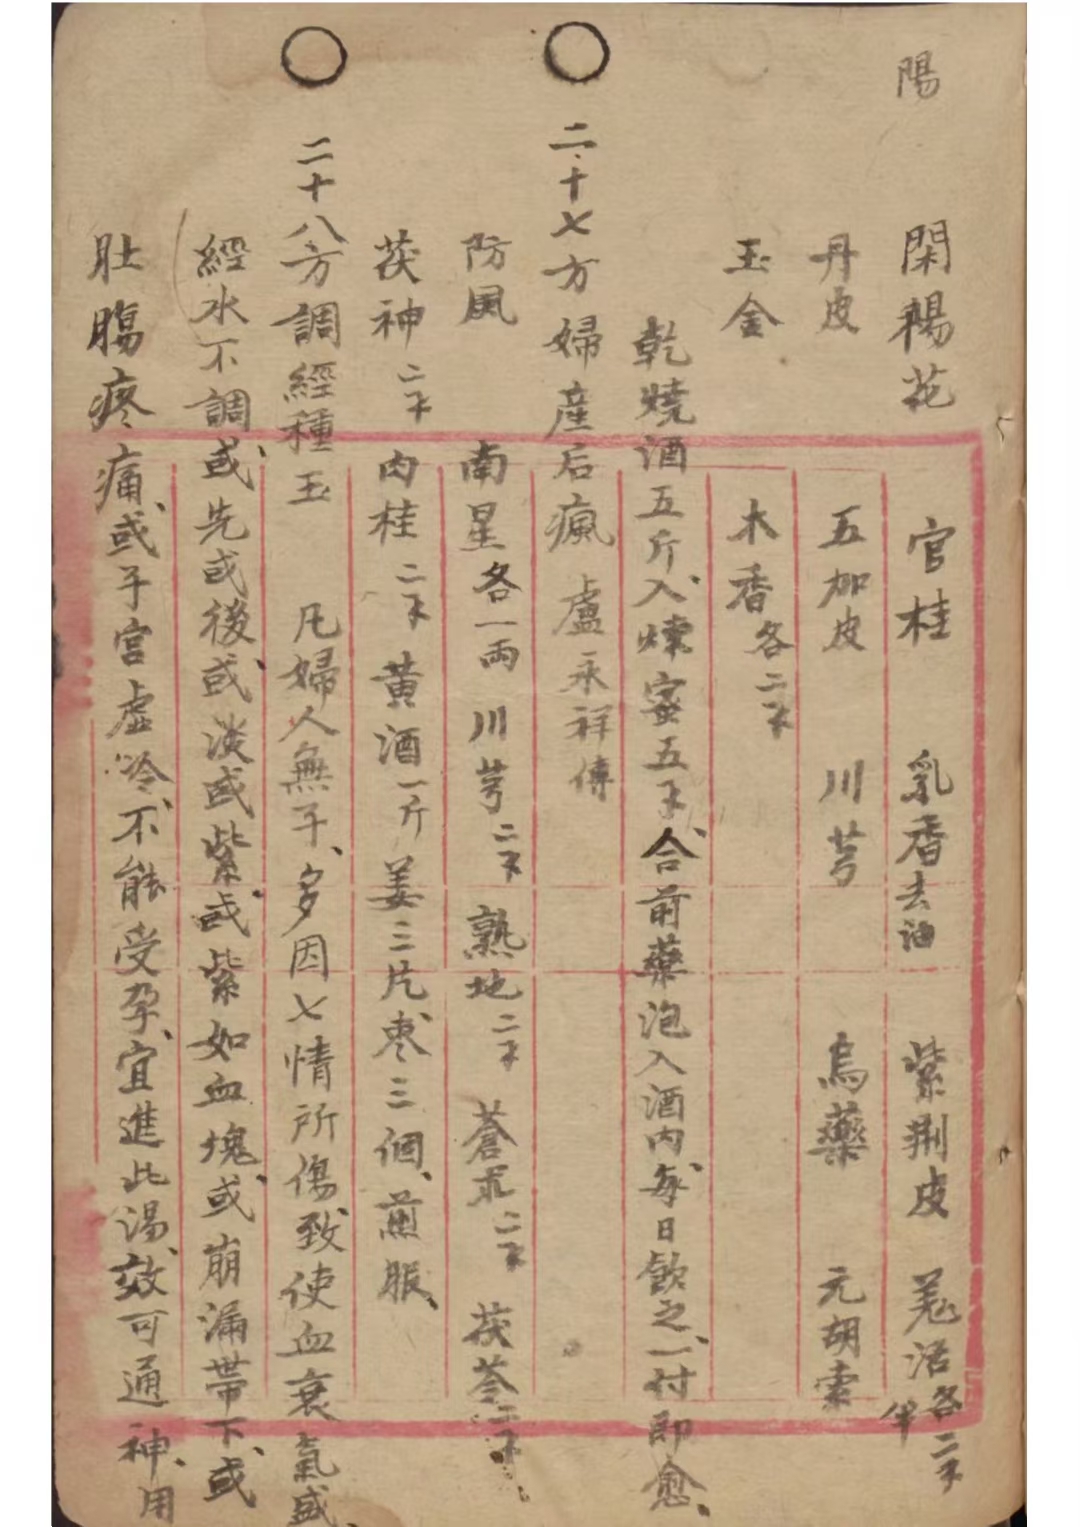 陽
閑楊花 官桂 乳香去油 紫荆皮 羗活各二半
丹皮 五加皮 川芎 烏藥 元胡索
玉金 木香各二
乾燒酒五斤入煉蜜五合前藥泡入酒内每日飲之一付即愈
二十七方婦産后瘋 盧永祥傳
防風 南星各一両 川芎二 熟地二 蒼朮二 茯苓二
茯神二 肉桂二 黄酒一斤 姜三片枣三個煎服
二十八方調經種玉 凡婦人無子多因七情所傷致使血衰氣盛
經水不調或先或後或淡或紫或紫如血塊或崩漏帶下或
肚膓疼痛或子宫虛冷不能受孕宜進此湯效可通神用